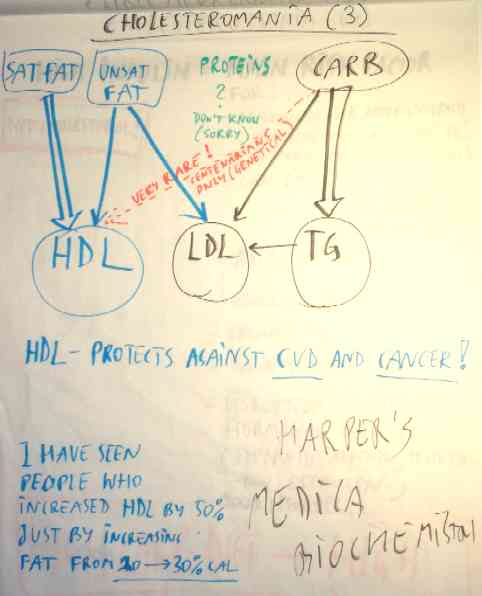 CHOLESTEROMANIA (3)
SAT FAT
UNSAT
FAT
PROTEINS
?
DON'T KNOW
(SORRY)
CARB
VERY RARE!
CENTENARIANS
ONLY (GENETICAL)
HDL
LDL
TG
HDL - PROTECTS AGAINST CVD AND CANCER!
I HAVE SEEN
PEOPLE WHO
INCREASED HDL BY 50%
JUST BY INCREASING
FAT FROM 20 → 30% CAL
HARPER'S
MEDICA
BIOCHEMISTRY